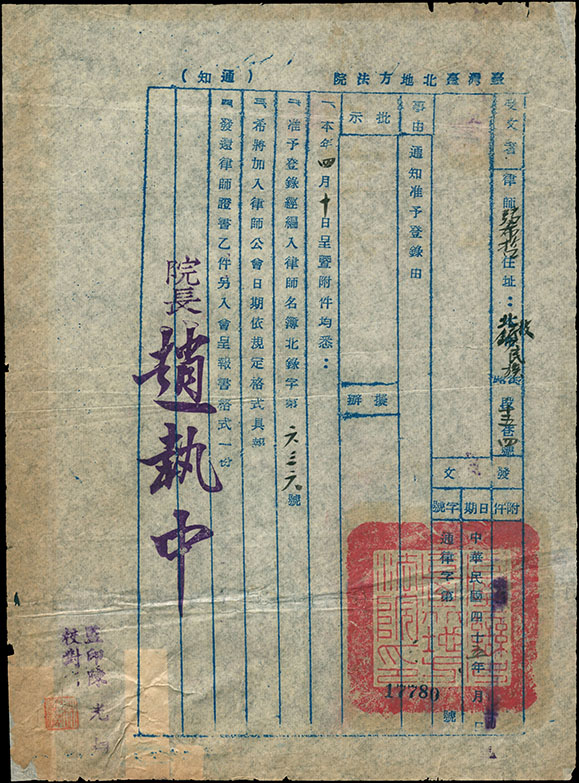 臺灣臺北地方法院 （通知）
受文者 律師 住址：
事由 通知准予登錄由
批示
擬辦
發文
附件
日期 中華民國四十五年 月
字號 通律字第 17780 號
一、本年四月十日呈暨附件均悉：
二、准予登錄經編入律師名簿北錄字第六三六號
三、希將加入律師公會日期依規定格式具報
四、發還律師證書乙件另入會呈報書格式一份
院長 趙執中
監印陳光
校對